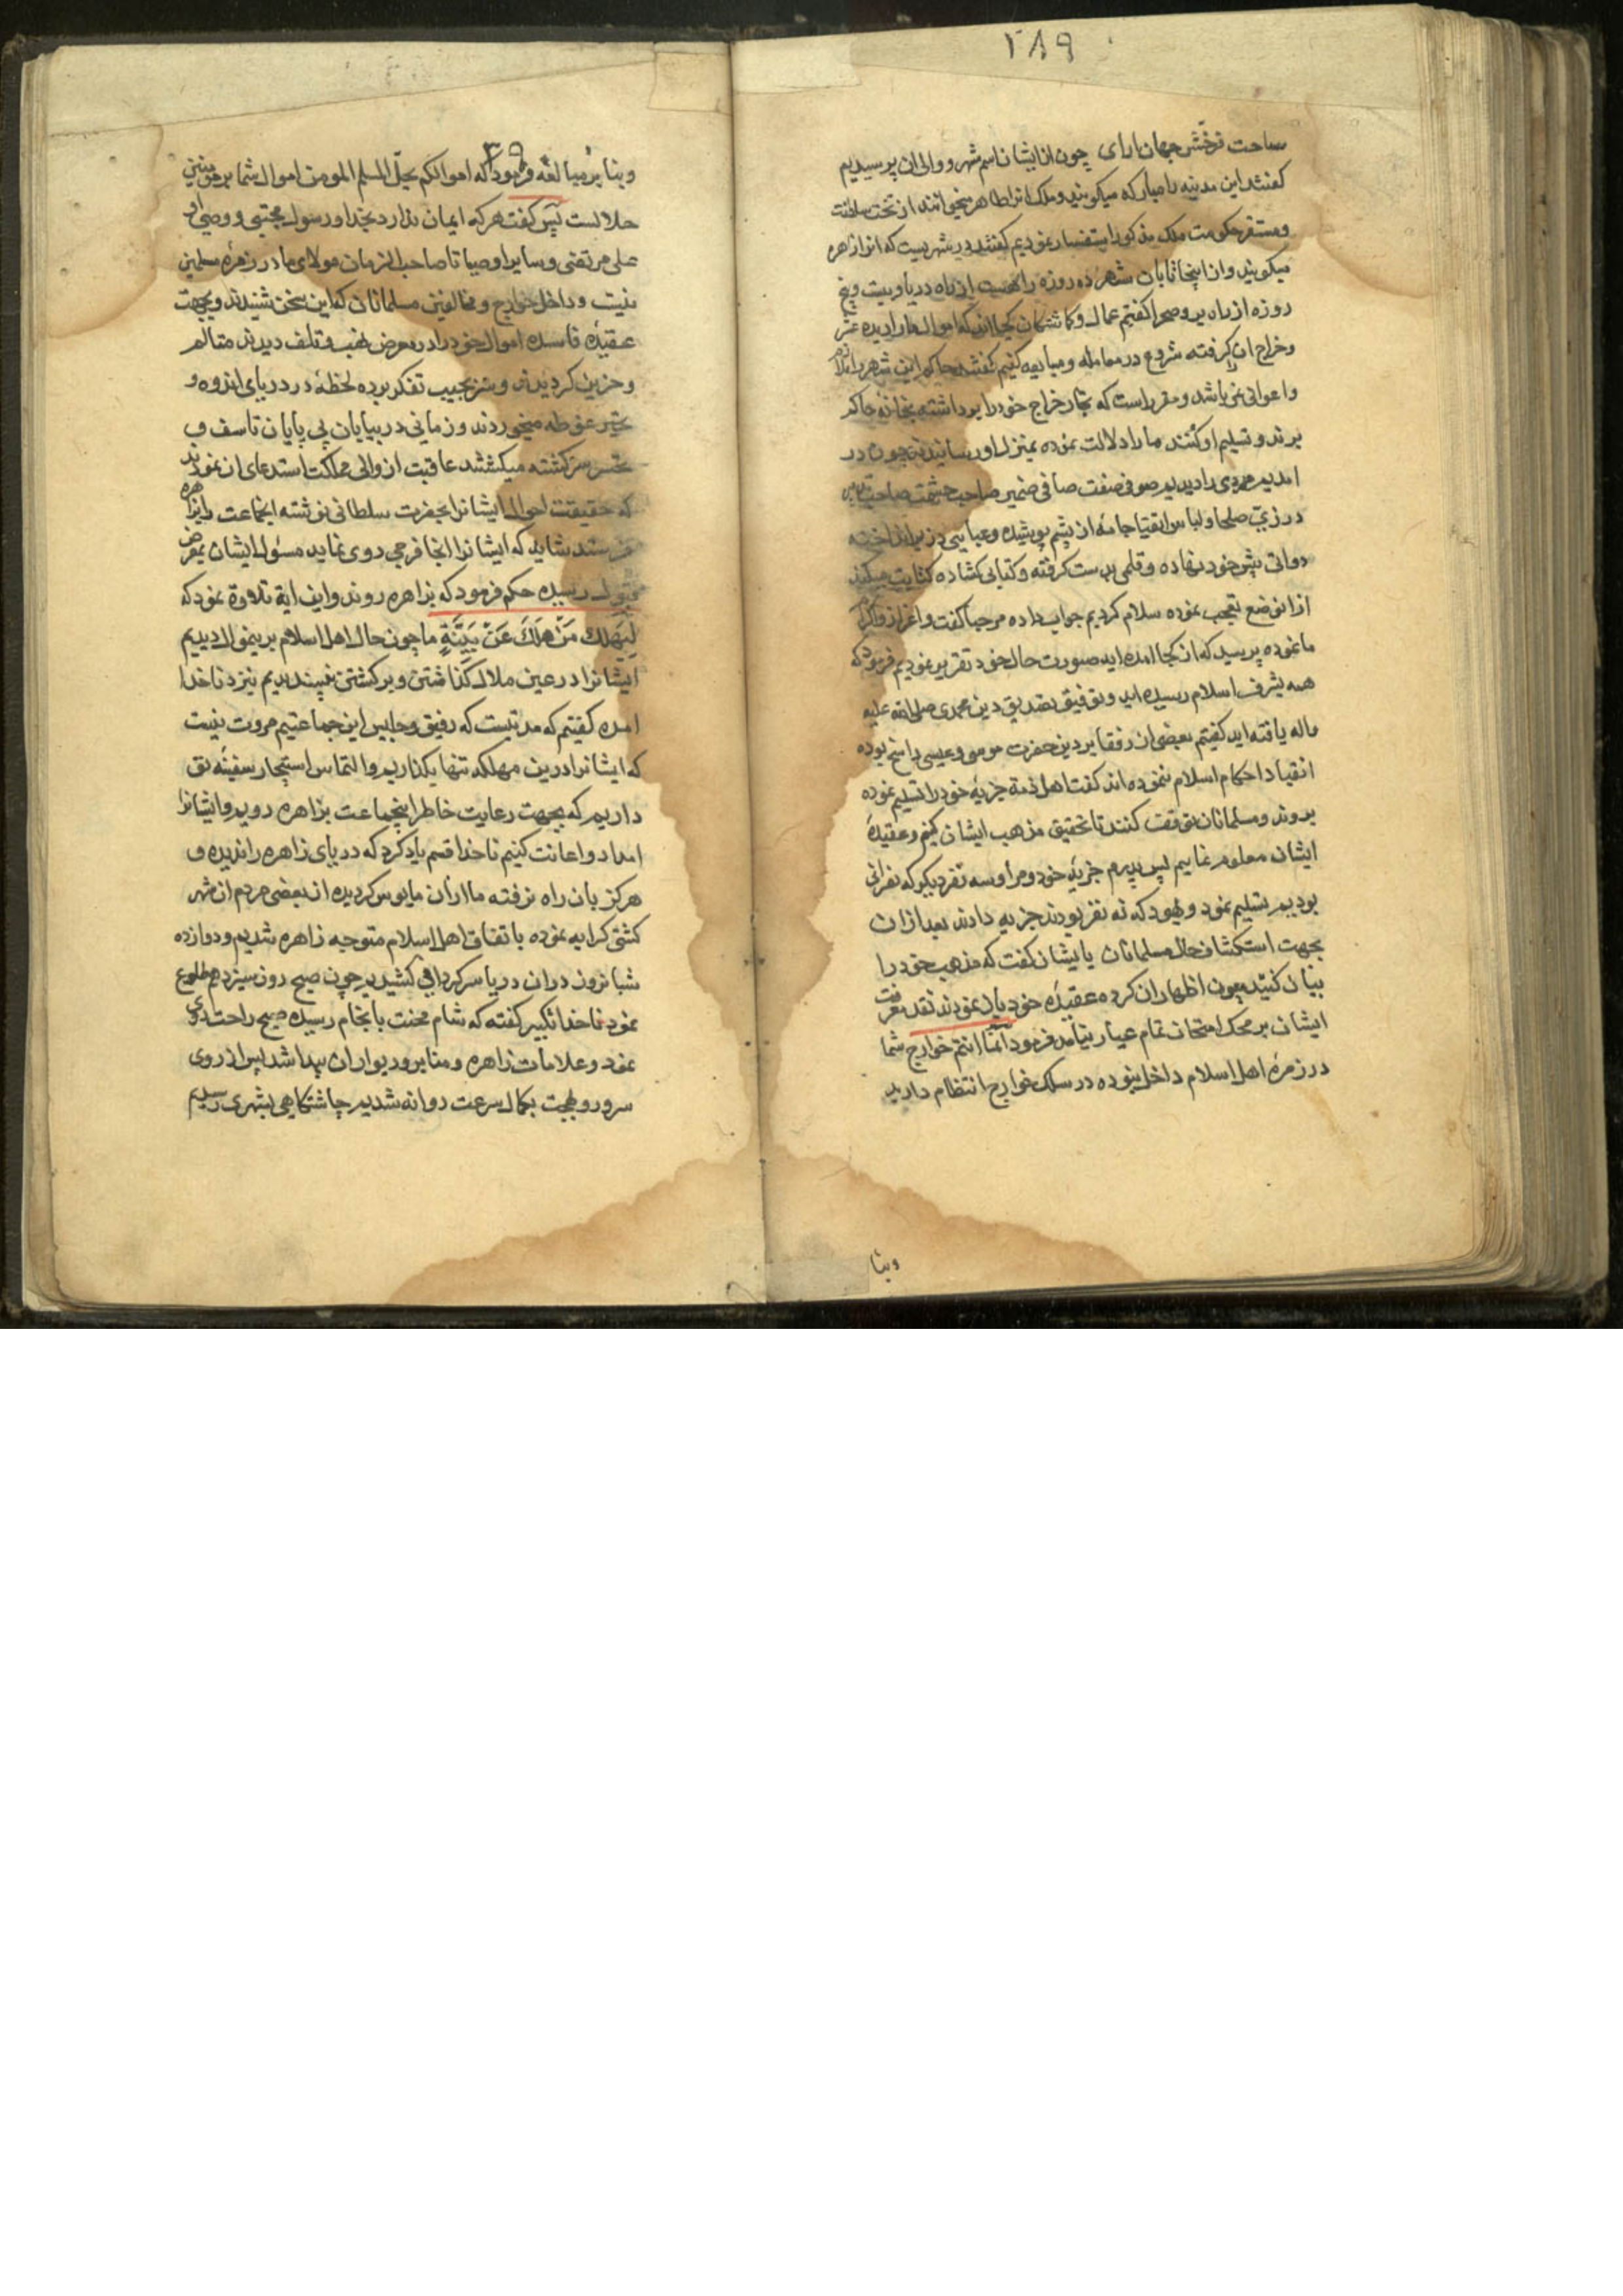 ۲۸۹
ساحت نزخّش جهان ارای چون از ایشان اسم شهر و والی ان پرسیدیم
کفتند این مدینه را مبارکه میکویند و ملک انرا طاهر میخوانند از تخت سلطنت
و مستقر حکومت ملک مذکور استفسار نمودیم کفتند در شهریست که انرا زاهره
میکویند و از اینجا تا بان شهر ده روزه راهست از راه دریا و بیست و پنج
روزه از راه بر و صحرا کفتم عمال و کماشتکان کجا اند که اموال ما را دیده عشر
و خراج ان کرفته شروع در معامله و مبایعه کنیم کفتند حاکم این شهر را ملازم
و اعوانی نمی باشد و مقرر است که تجار خراج خود را برداشته بخانه حاکم
برند و تسلیم او کنند ما را دلالت نموده بمنزل او رسانیدند چون در
امدیم مردی را دیدیم صوفی صفت صافی ضمیر صاحب حشمت صاحب
در زیّ صلحا و لباس اتقیا جامه از پشم پوشیده و عبایی در زیر انداخته
دواتی پیش خود نهاده و قلمی بدست کرفته و کتابی کشاده کتابت میکند
از انوضع تعجب نموده سلام کردیم جواب داده مرحبا کفت و اعزاز و اکرام
ما نموده پرسید که از کجا امده اید صورت حال خود تقریر نمودیم فرمود که
همه بشرف اسلام رسیده اید و توفیق تصدیق دین محمدی صلی الله علیه
و اله یافته اید کفتیم بعضی از رفقا بر دین حضرت موسی و عیسی راسخ بوده
انقیاد احکام اسلام ننموده اند کفت اهل ذمة جزیه خود را تسلیم نموده
بروند و مسلمانان توقف کنند تا تحقیق مذهب ایشان کنیم و عقیدهٔ
ایشان معلوم نماییم پس پدرم جزیه خود و مرا و سه نفر دیکر که نصرانی
بودیم تسلیم نمود و یهود که نه نفر بودند جزیه دادند بعد از ان
بجهت استکشاف حال مسلمانان با ایشان کفت که مذهب خود را
بیان کنید چون اظهار ان کرده عقیدهٔ خود بیان نمودند نقد معرفت
ایشان بر محک امتحان تمام عیار نیامد فرمود انّما انتم خوارج شما
در زمرهٔ اهل اسلام داخل نبوده در سلک خوارج انتظام دارید
وبنا
۲۹۰
وبنا بر مبالغه فرمود که اموالکم یحلّ للمسلم المومن اموال شما بر مومنین
حلالست پس کفت هر که ایمان ندارد بخدا و رسول مجتبی و وصی او
علی مرتضی و سایر اوصیا تا صاحب الزمان مولای ما در زمرهٔ مسلمین
نیست و داخل خوارج و مخالفین مسلمانان که این سخن شنیدند و بجهت
عقیدهٔ فاسده اموال خود را در معرض نهب و تلف دیدند متالم
و حزین کردیدند و سر بجیب تفکر برده لحظهٔ در دریای اندوه و
تحیر غوطه میخوردند و زمانی در بیابان بی پایان تاسف و
تحسر سرکشته میکشتند عاقبت از والی مملکت استدعای ان نمودند
که حقیقت احوال ایشانرا بحضرت سلطانی نوشته انجماعت را بزاهره
فرستد شاید که ایشانرا انجا فرجی روی نماید مسئول ایشان بمعرض
قبول رسیده حکم فرمود که بزاهره روند و این ایة تلاوة نمود که
لِیَهلِكَ مَنْ هَلَكَ عَنْ بَیِّنَةٍ ما چون حال اهل اسلام بر ینموال دیدیم
ایشانرا در عین ملال کذاشتن و برکشتن نپسندیدیم نزد ناخدا
امده کفتیم که مدتیست که رفیق و جلیس این جماعتیم مروت نیست
که ایشانرا درین مهلکه تنها بکذاریم و التماس استیجار سفینه تو
داریم که بجهت رعایت خاطر اینجماعت بزاهره رویم و ایشانرا
امداد و اعانت کنیم ناخدا قسم یاد کرد که دریای زاهره را ندیده و
هرکز بان راه نرفته ما ازان مایوس کردیده از بعضی مردم ان شهر
کشتی کرایه نموده باتفاق اهل اسلام متوجه زاهره شدیم و دوازده
شبانروز دران دریا سرکردانی کشیدیم چون صبح روز سیزدهم طلوع
نمود ناخدا تکبیر کفته که شام محنت بانجام رسیده صبح راحت روی
نمود و علامات زاهره و منابر و دیوار ان پیدا شد پس از روی
سرور و بهجت بکمال سرعت روانه شدیم چاشتکاهی بشهری رسیدیم